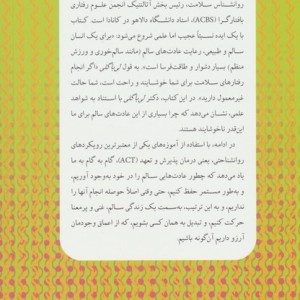 روانشناس سلامت، رئیس بخش آنالتیک انجمن علوم رفتاری
بافتارگرا (ACBS)، استاد دانشگاه دالاهو در کانادا است. کتاب
با یک ایده نسبتاً عجیب اما علمی شروع می‌شود: «برای یک انسان
سالم و طبیعی، رعایت عادت‌های سالم (مانند سالم‌خوری و ورزش
منظم) بسیار دشوار و طاقت‌فرسا است». به قول لی‌پاگتی «اگر انجام
رفتارهای سلامت برای شما خوشایند و راحت است، شما حالت
غیرمعمول دارید». در این کتاب، دکتر لی‌پاگتی با استناد به شواهد
علمی، نشان می‌دهد که چرا بسیاری از این عادت‌های سالم برای ما
این‌قدر ناخوشایند هستند.
در ادامه، با استفاده از آموزه‌های یکی از معتبرترین رویکردهای
روانشناختی، یعنی درمان پذیرش و تعهد (ACT)، گام به گام به ما
یاد می‌دهد که چطور عادت‌هایی سالم را در خود به‌وجود آوریم،
و به‌طور مستمر حفظ کنیم، حتی وقتی اصلاً حوصله انجام آنها را
نداریم، و به این ترتیب، به‌سمت یک زندگی سالم، غنی و پرمعنا
حرکت کنیم، و تبدیل به همان کسی بشویم، که از اعماق وجودمان
آرزو داریم آن‌گونه باشیم.